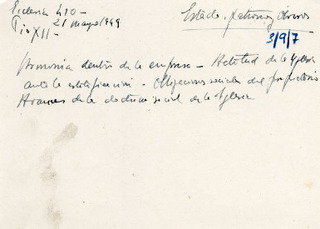 Ecclesia 410 -
Pio XII - 21 mayo 1949
Estado, patronos y obreros
3/9/7
Armonia dentro de la empresa - Actitud de la Iglesia
ante la estatificación - Obligaciones sociales del propietario
Avances de la doctrina social de la Iglesia